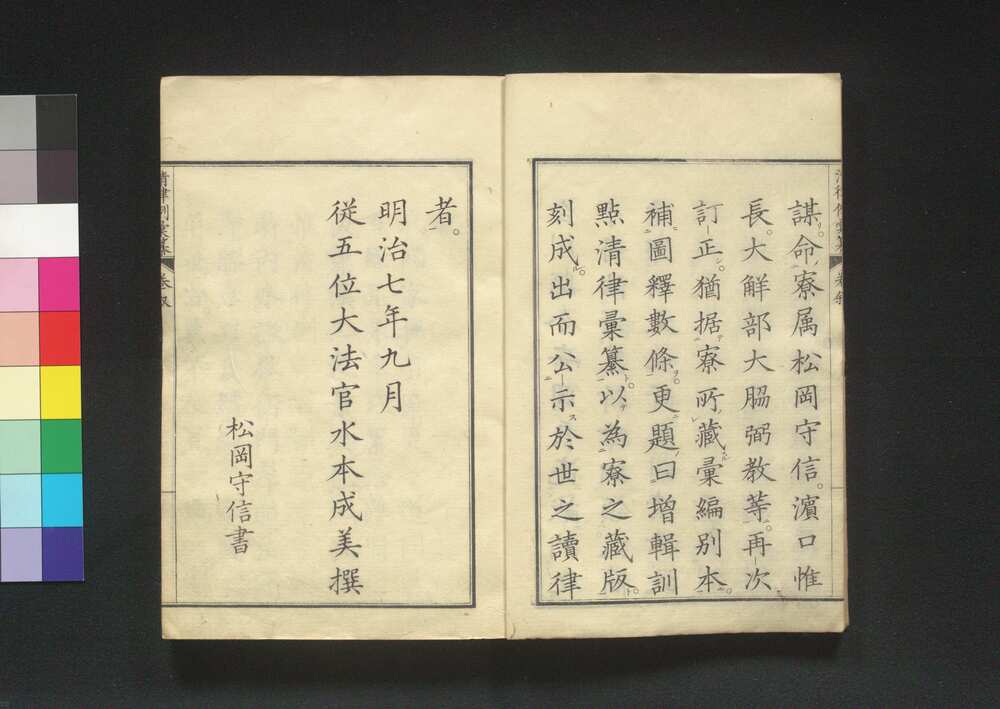 謀。命寮属松岡守信。濵口惟
長。大解部大脇弼教等。再次
訂正。猶据寮所藏彙編別本。
補圖釋數條。更題曰增輯訓
點清律彙纂。以為寮之藏版。
刻成。出而公示於世之讀律
者。
明治七年九月
從五位大法官水本成美撰
松岡守信書
清律例彙纂
卷叙